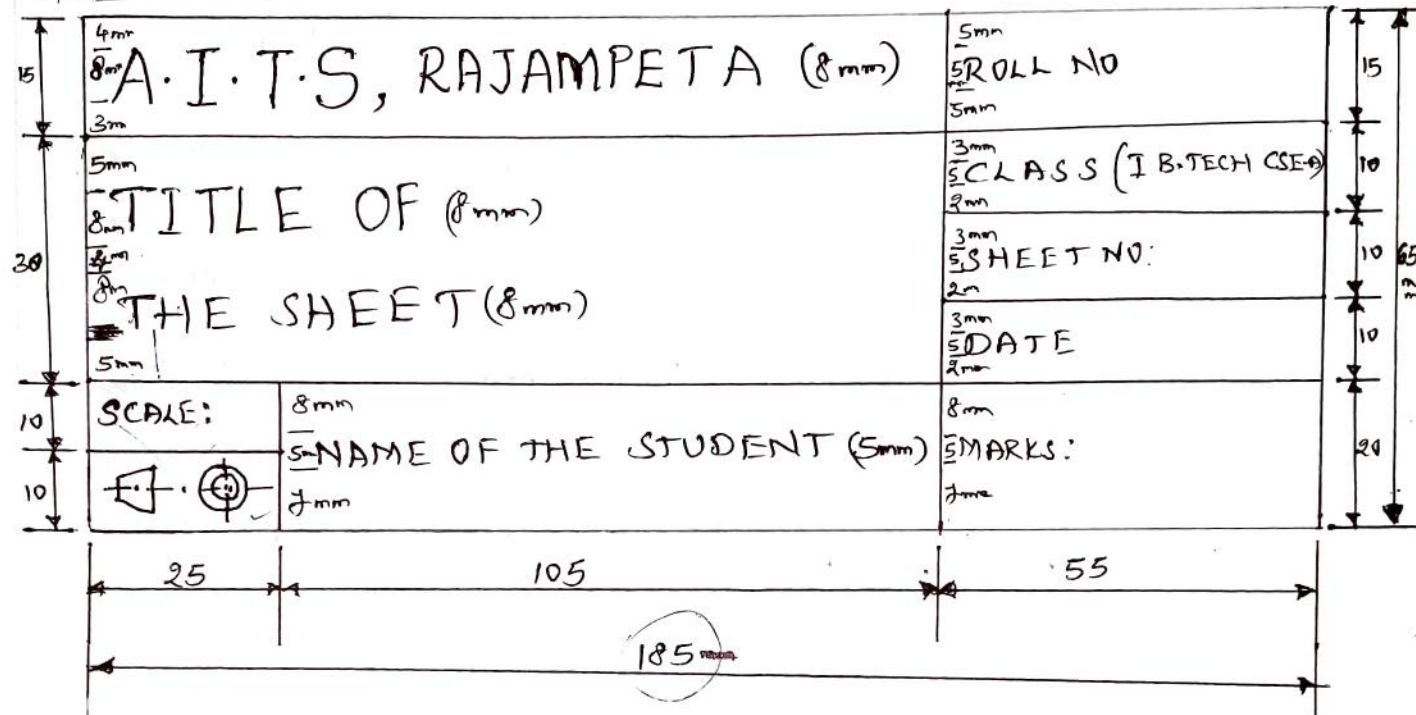 4mm
8mm
A.I.T.S, RAJAMPETA (8mm)
3m
5mm
5 ROLL NO
mm
5mm
15
15
5mm
8mm TITLE OF (8mm)
4m
8m THE SHEET (8mm)
5mm
30
3mm
5 CLASS (I B.TECH CSE-A)
2mm
10
3mm
5 SHEET NO:
2m
10
65
mm
3mm
5 DATE
2mm
10
10
SCALE:
10
8mm
5m NAME OF THE STUDENT (5mm)
7mm
8mm
5 MARKS:
7mm
20
25
105
55
185